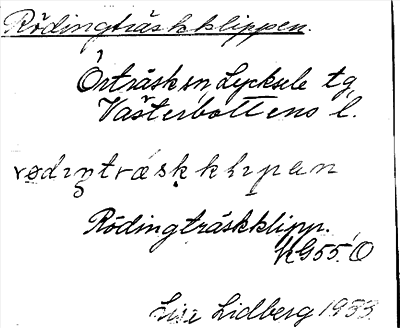 Rödingträskklippen.
Örträsk sn Lycksele tg,
Västerbottens l.
rødıŋtræskklıpan
Rödingträskklipp.
KG55.Ö
Lisa Lidberg 1933.